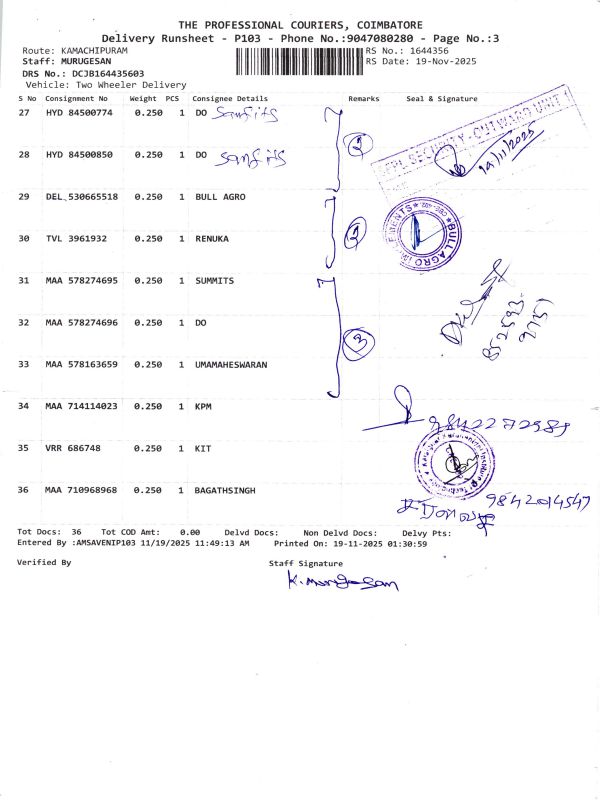 THE PROFESSIONAL COURIERS, COIMBATORE
Delivery Runsheet - P103 - Phone No.:9047080280 - Page No.:3
Route: KAMACHIPURAM RS No.: 1644356
Staff: MURUGESAN RS Date: 19-Nov-2025
DRS No.: DCJB164435603
Vehicle: Two Wheeler Delivery
S No Consignment No Weight PCS Consignee Details Remarks Seal & Signature
27 HYD 84500774 0.250 1 DO Sanfits
28 HYD 84500850 0.250 1 DO Sanfits
2
SECURITY-OUTWARD UNIT 1
19/11/2025
29 DEL 530665518 0.250 1 BULL AGRO
30 TVL 3961932 0.250 1 RENUKA
2
BULL AGRO IMPLEMENTS
31 MAA 578274695 0.250 1 SUMMITS
32 MAA 578274696 0.250 1 DO
33 MAA 578163659 0.250 1 UMAMAHESWARAN
3
34 MAA 714114023 0.250 1 KPM
9842272989
35 VRR 686748 0.250 1 KIT
36 MAA 710968968 0.250 1 BAGATHSINGH
9842014547
Tot Docs: 36 Tot COD Amt: 0.00 Delvd Docs: Non Delvd Docs: Delvy Pts:
Entered By :AMSAVENIP103 11/19/2025 11:49:13 AM Printed On: 19-11-2025 01:30:59
Verified By Staff Signature
K. Murugesan